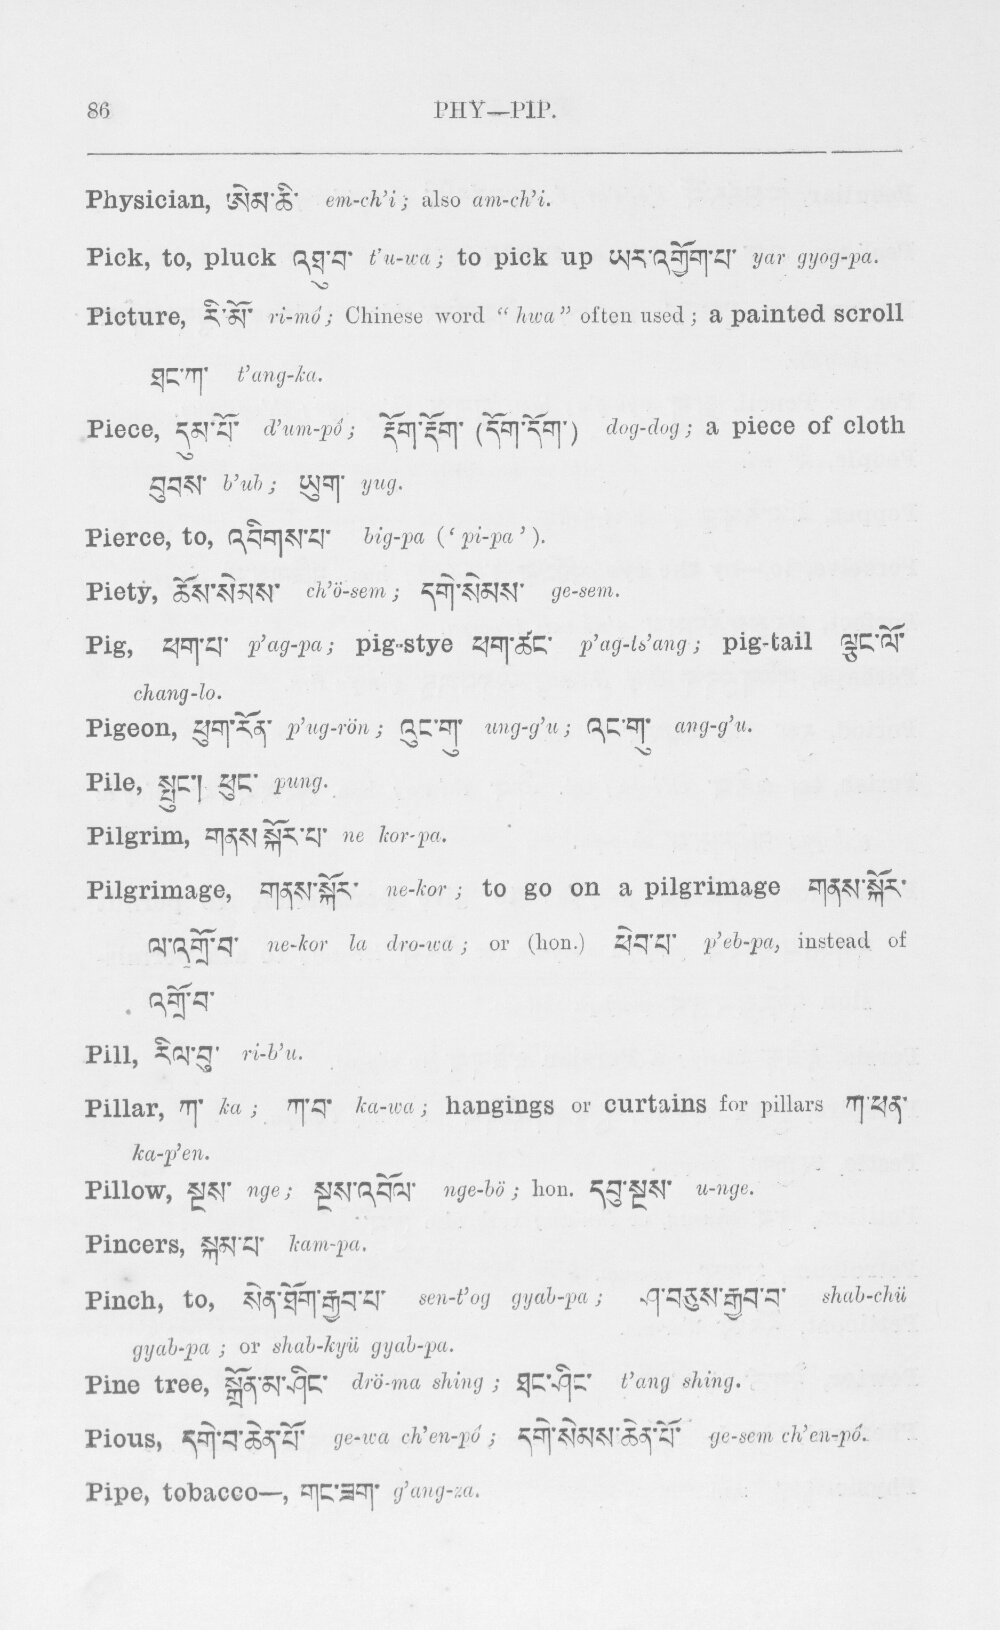 86 PHY—PIP.
Physician, ཨེམ་ཆི་ em-ch'i; also am-ch'i.
Pick, to, pluck འཐུ་བ་ t'u-wa; to pick up ཡར་འགྱོག་པ་ yar gyog-pa.
Picture, རི་མོ་ ri-mó; Chinese word “hwa” often used; a painted scroll
ཐང་ཀ་ t'ang-ka.
Piece, དུམ་པོ་ d'um-pó; རྡོག་རྡོག་ (དོག་དོག་) dog-dog; a piece of cloth
བུབས་ b'ub; ཡུག་ yug.
Pierce, to, འབིགས་པ་ big-pa (‘pi-pa’).
Piety, ཆོས་སེམས་ ch'ö-sem; དགེ་སེམས་ ge-sem.
Pig, ཕག་པ་ p'ag-pa; pig-stye ཕག་ཚང་ p'ag-ts'ang; pig-tail ལྕང་ལོ་
chang-lo.
Pigeon, ཕུག་རོན་ p'ug-rön; འུང་གུ་ ung-g'u; འང་གུ་ ang-g'u.
Pile, སྤུང་། ཕུང་ pung.
Pilgrim, གནས་སྐོར་པ་ ne kor-pa.
Pilgrimage, གནས་སྐོར་ ne-kor; to go on a pilgrimage གནས་སྐོར་
ལ་འགྲོ་བ་ ne-kor la dro-wa; or (hon.) ཕེབ་པ་ p'eb-pa, instead of
འགྲོ་བ་
Pill, རིལ་བུ་ ri-b'u.
Pillar, ཀ་ ka; ཀ་བ་ ka-wa; hangings or curtains for pillars ཀ་ཕན་
ka-p'en.
Pillow, སྔས་ nge; སྔས་འབོལ་ nge-bö; hon. དབུ་སྔས་ u-nge.
Pincers, སྐམ་པ་ kam-pa.
Pinch, to, སེན་ཐོག་རྒྱབ་པ་ sen-t'og gyab-pa; ཤ་བཅུས་རྒྱབ་པ་ shab-chü
gyab-pa; or shab-kyü gyab-pa.
Pine tree, སྒྲོན་མ་ཤིང་ drö-ma shing; ཐང་ཤིང་ t'ang shing.
Pious, དགེ་བ་ཆེན་པོ་ ge-wa ch'en-pó; དགེ་སེམས་ཆེན་པོ་ ge-sem ch'en-pó.
Pipe, tobacco—, གང་ཟག་ g'ang-za.